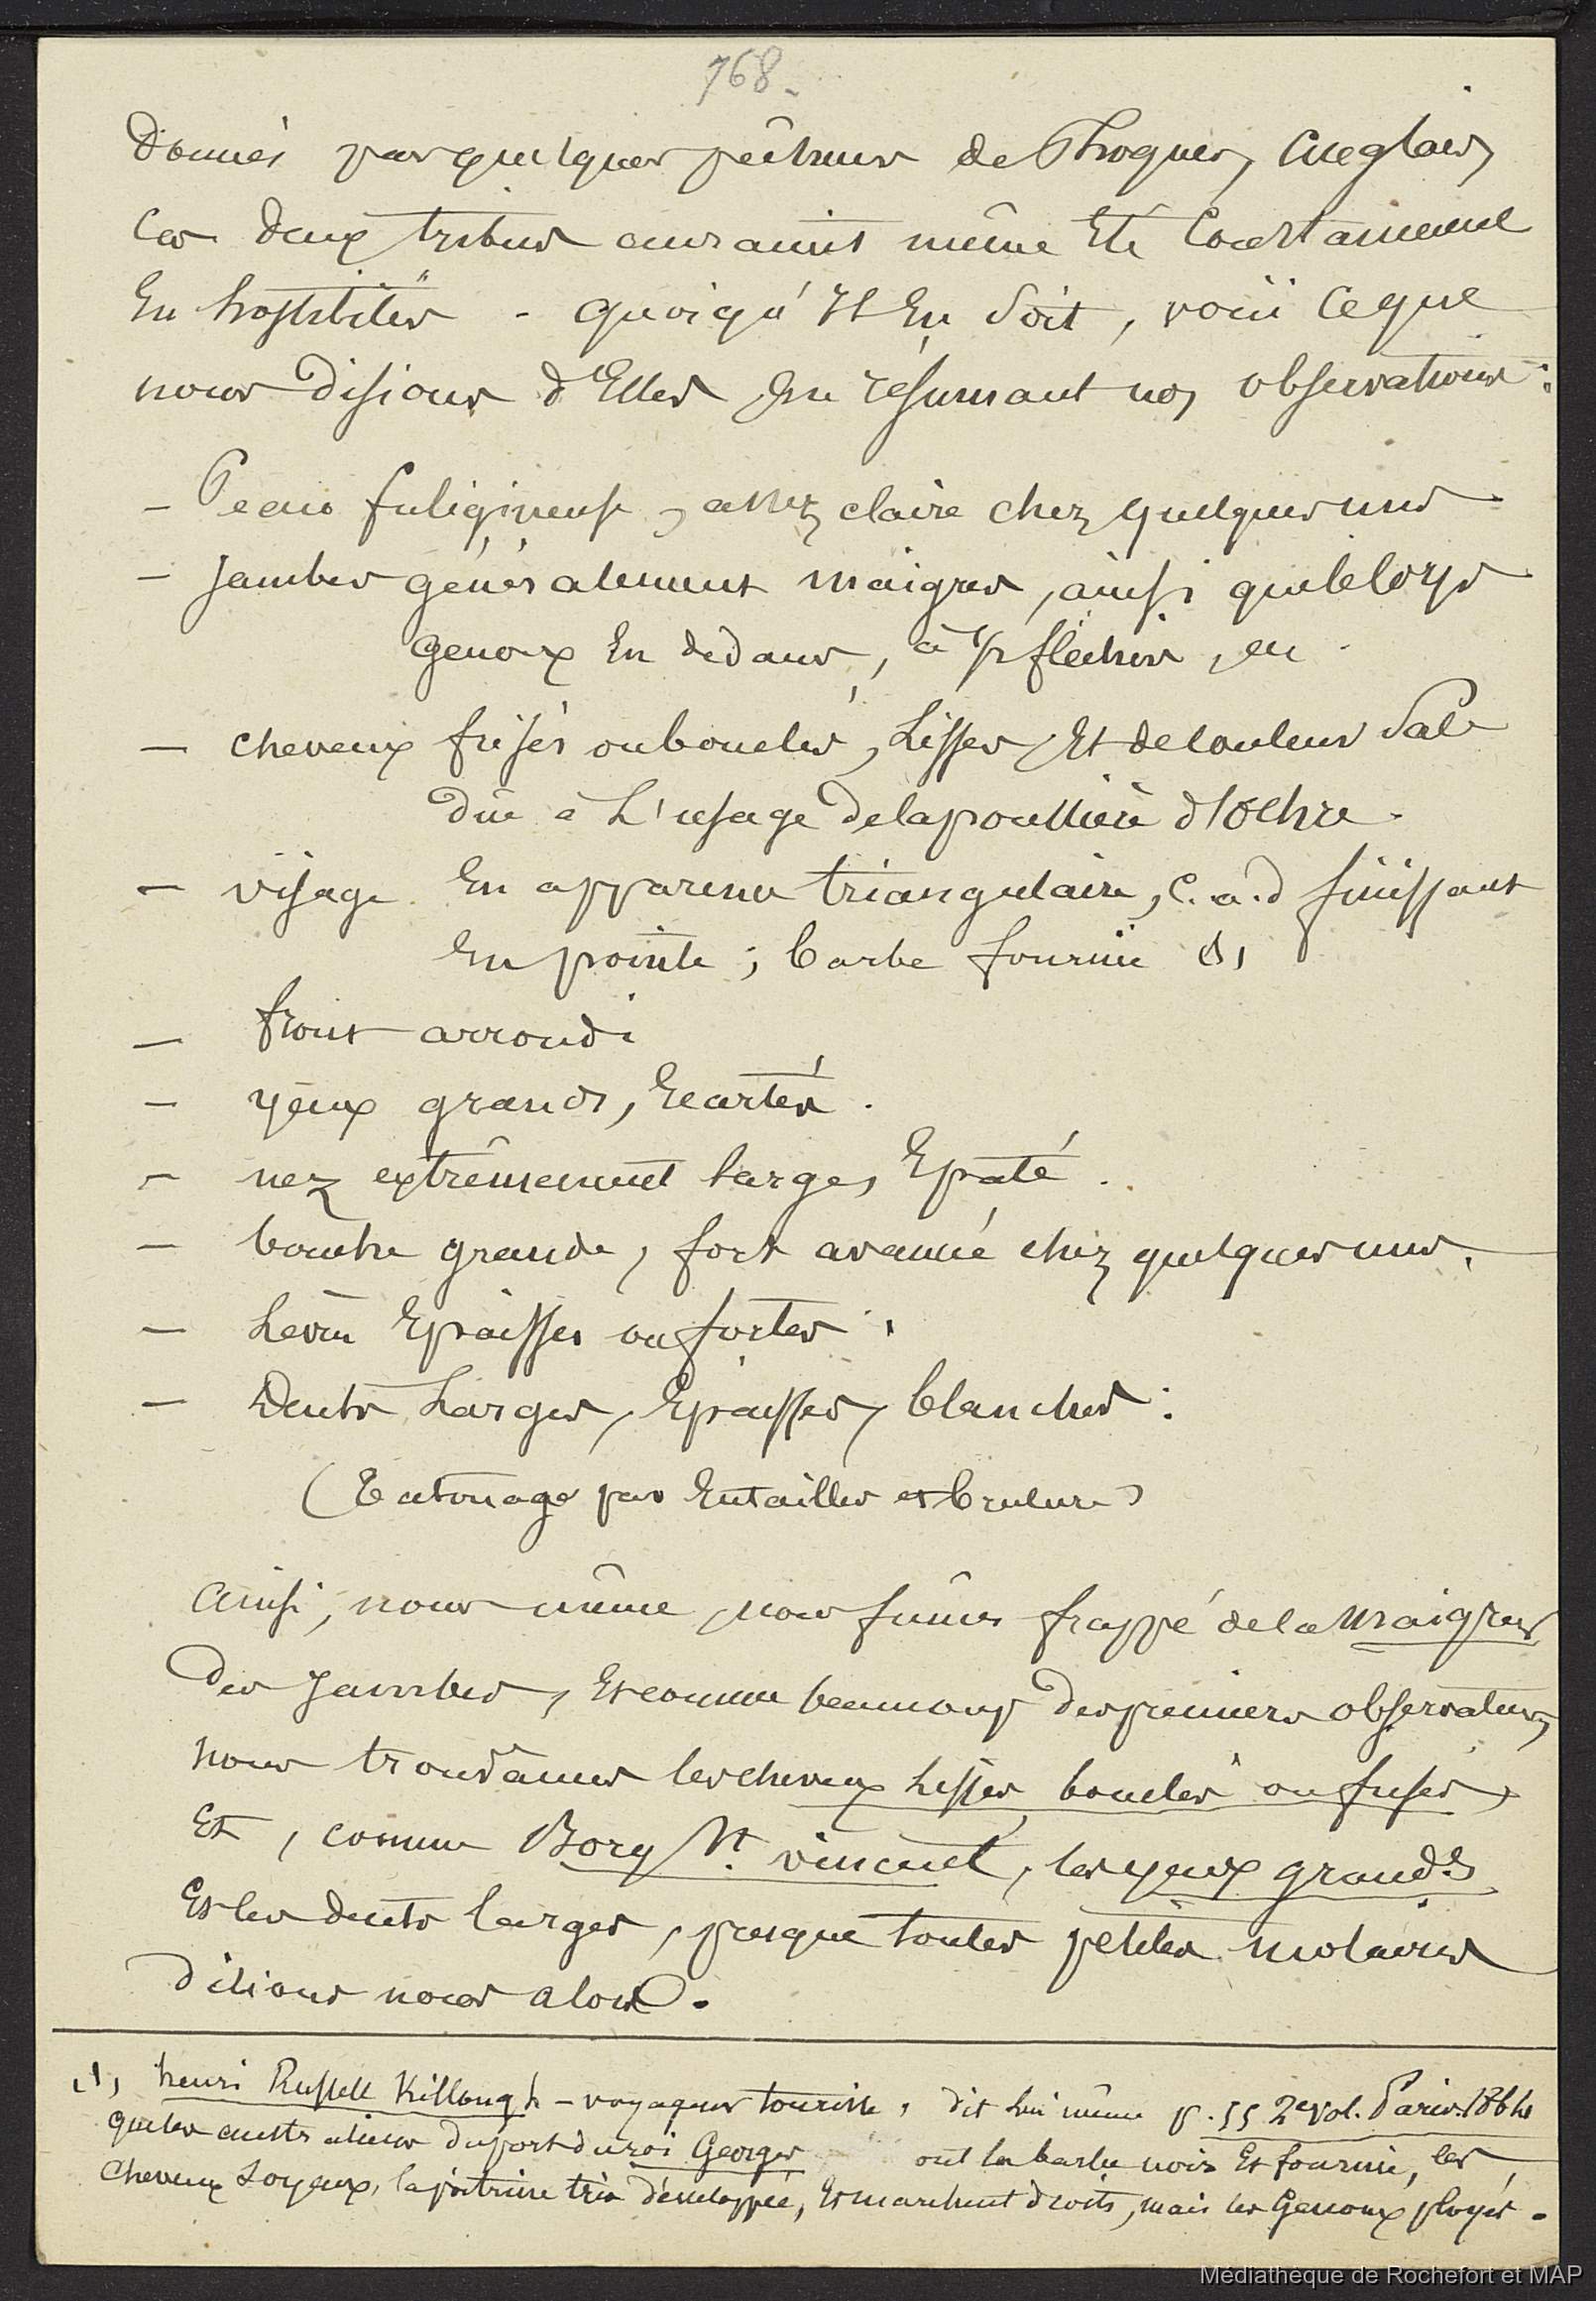 768.
donnés par quelques pêcheurs de Phoques, anglais,
ces deux tribus auraient même été
en hostilités - quoiqu'il en soit, voici ce que
nous disions d'Elles en résumant nos observations :
- Peau fuligineuse, assez claire chez quelques uns
- jambes généralement maigres, ainsi que le corps
genoux en dedans, à 1/2 fléchis, en
- cheveux frisés ou bouclés, Lisses, Et de couleur Sale
due à L'usage de la poussière d'Ochre.
- visage En apparence triangulaire, c.a.d finissant
En pointe ; barbe fournie (1)
- front arrondi
- yeux grands, Ecartés.
- nez extrêmement large, Epaté.
- bouche grande, fort avancée chez quelques uns.
- Lèvres Epaisses ou fortes.
- Dents Larges, Epaisses, blanches :
(Tatouage par Entailles et brulure)
ainsi, nous même, nous fûmes frappé de la maigreur
des Jambes, Et comme beaucoup des premiers observateurs,
nous trouvâmes les cheveux Lisses, bouclés ou frisés,
Et, comme Bory St. vincent, les yeux grands
Et les dents larges, presque toutes petites molaires
disions nous alors.
(1) henri Russell Killough - voyageur touriste, dit lui même p. 55 2e vol. Paris. 1864
que les australiens du port du roi Georges ont la barbe noire Et fournie, les
cheveux Soyeux, la poitrine très développée, Et marchent droits, mais les Genoux ployés.
Médiathèque de Rochefort et MAP